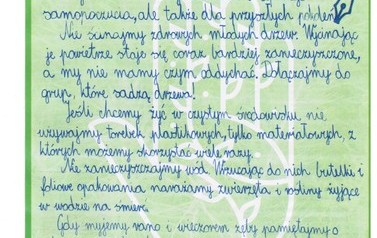 samopoczucia, ale także dla przyszłych pokoleń.
Nie ścinajmy zdrowych młodych drzew. Wycinając
je powietrze staje się coraz bardziej zanieczyszczone,
a my nie mamy czym oddychać. Dołączajmy do
grup, które sadzą drzewa!
Jeśli chcemy żyć w czystym środowisku nie
używajmy torebek plastikowych, tylko materiałowych, z
których możemy skorzystać wiele razy.
Nie zanieczyszczajmy wód. Wrzucając do nich butelki i
foliowe opakowania narażamy zwierzęta i rośliny żyjące
w wodzie na śmierć.
Gdy myjemy rano i wieczorem zęby pamiętajmy o